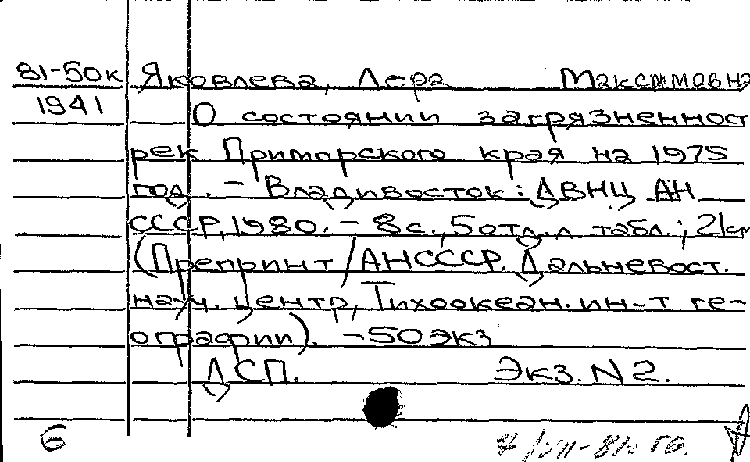 81-50к Яковлева, Лера Максимовна
1941 О состоянии загрязненност
рек Приморского края на 1975
год. - Владивосток: ДВНЦ АН
СССР, 1980. - 8с., 5 отд. л табл.; 21см
(Препринт/АНСССР. Дальневост.
науч. центр, Тихоокеан. ин-т ге-
ографии). - 50 экз
ДСП. Экз. N2.
6